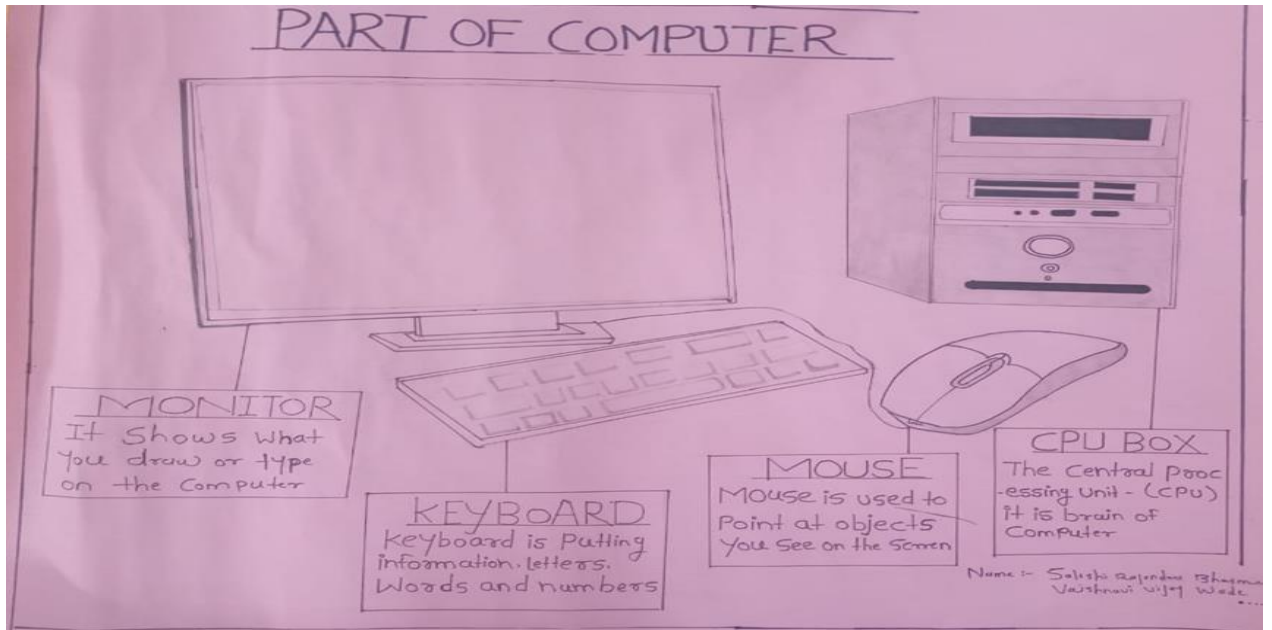 PART OF COMPUTER
MONITOR
It Shows What
you draw or type
on the Computer
KEYBOARD
Keyboard is Putting
information. letters.
Words and numbers
MOUSE
Mouse is used to
Point at objects
You See on the Screen
CPU BOX
The Central Prooc
-essing Unit - (CPU)
it is brain of
Computer
Name :-
Vaishnavi Vijay Wade